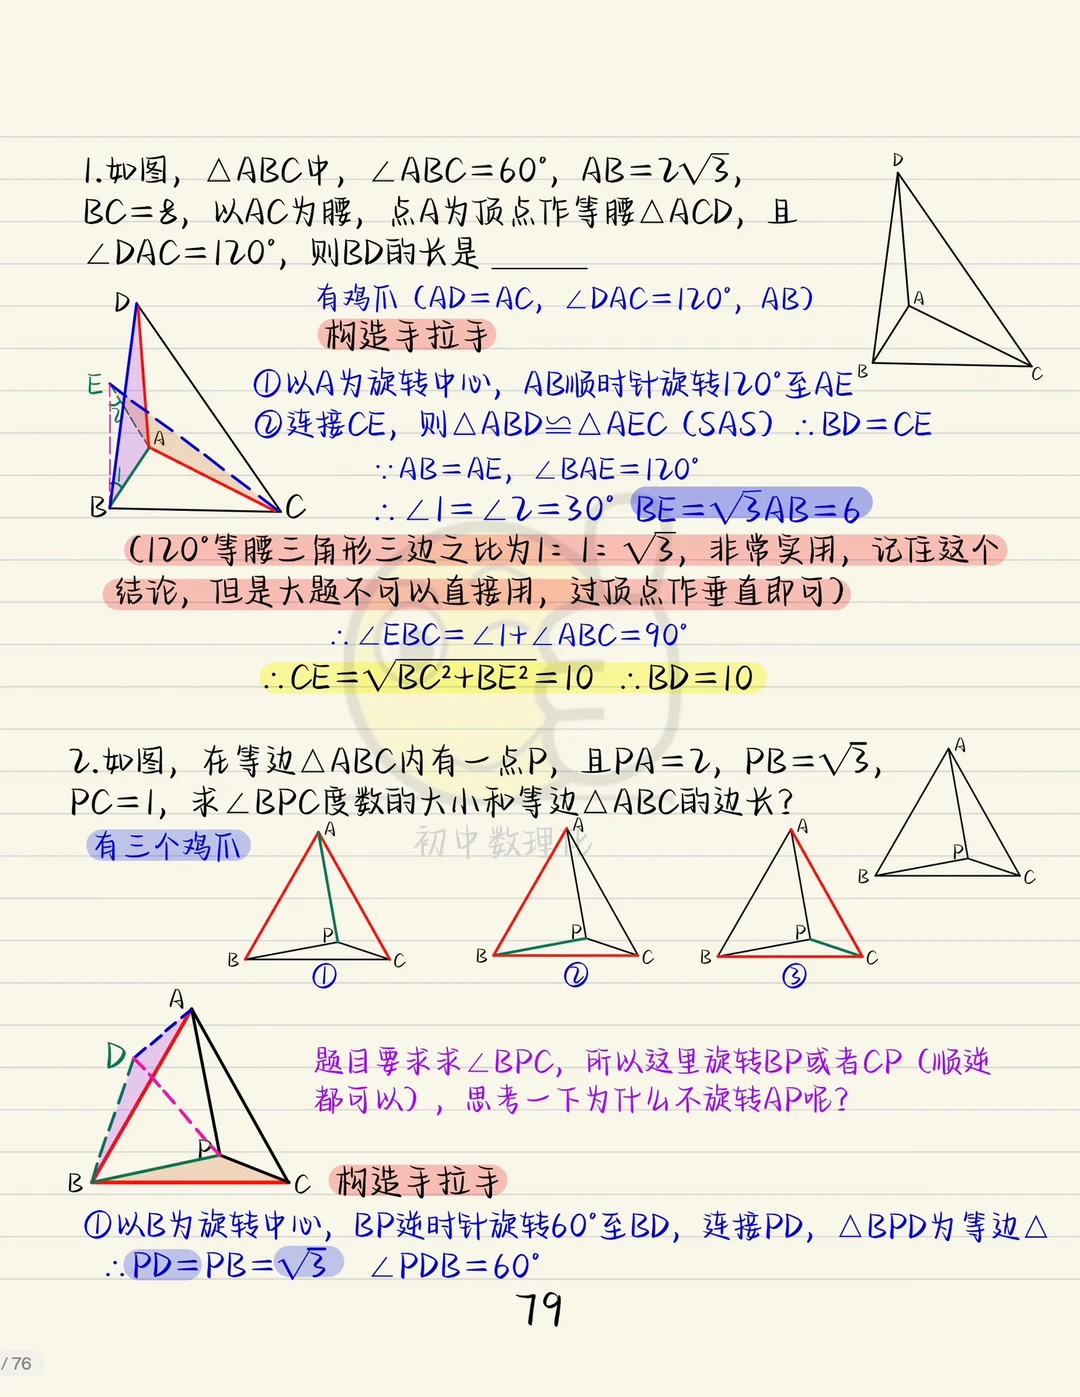 1.如图，△ABC中，∠ABC=60°，AB=2√3，
BC=8，以AC为腰，点A为顶点作等腰△ACD，且
∠DAC=120°，则BD的长是 ______
D
A
B
C
有鸡爪（AD=AC，∠DAC=120°，AB）
构造手拉手
D
E
2
A
1
B
C
①以A为旋转中心，AB顺时针旋转120°至AE
②连接CE，则△ABD≌△AEC（SAS）∴BD=CE
∵AB=AE，∠BAE=120°
∴∠1=∠2=30° BE=√3AB=6
（120°等腰三角形三边之比为1：1：√3，非常实用，记住这个
结论，但是大题不可以直接用，过顶点作垂直即可）
∴∠EBC=∠1+∠ABC=90°
∴CE=√BC²+BE²=10 ∴BD=10
2.如图，在等边△ABC内有一点P，且PA=2，PB=√3，
PC=1，求∠BPC度数的大小和等边△ABC的边长？
A
P
B
C
有三个鸡爪
初中数理化
A
P
B
C
①
A
P
B
C
②
A
P
B
C
③
A
D
P
B
C
题目要求求∠BPC，所以这里旋转BP或者CP（顺逆
都可以），思考一下为什么不旋转AP呢？
构造手拉手
①以B为旋转中心，BP逆时针旋转60°至BD，连接PD，△BPD为等边△
∴PD=PB=√3 ∠PDB=60°
79
/ 76